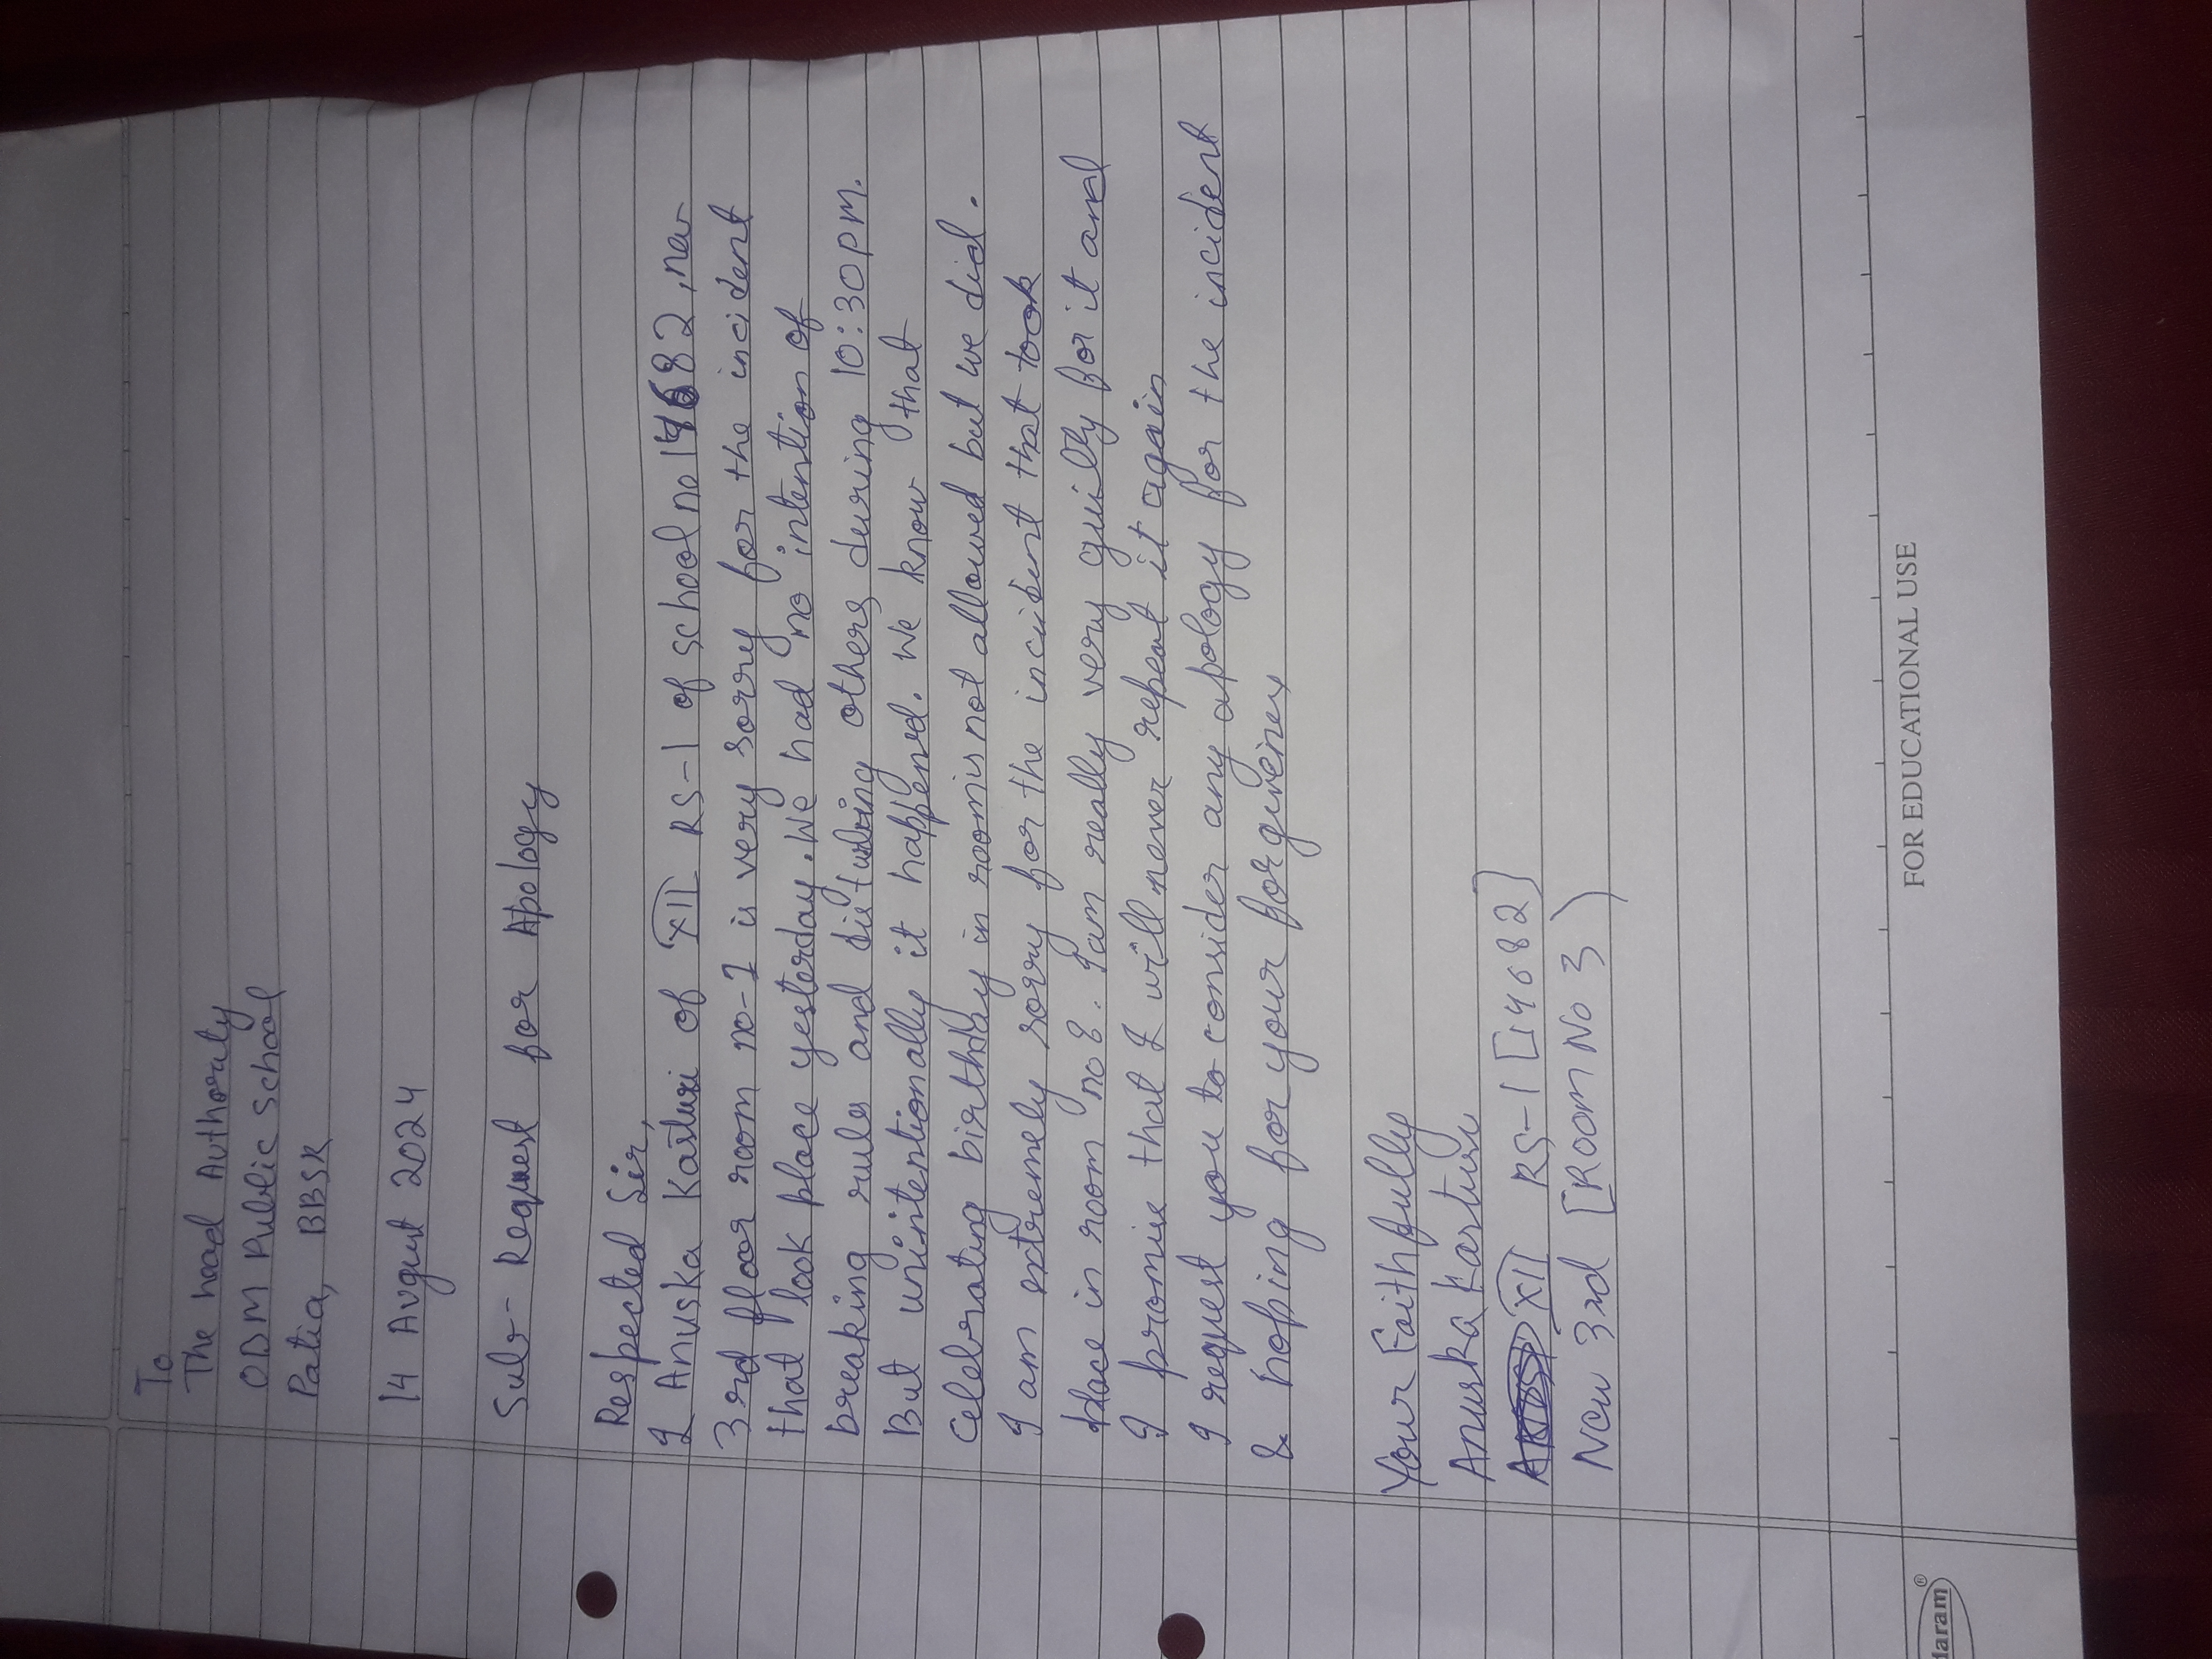 To
The head Authority
ODM Public school
Patia, BBSR
14 August 2024
Sub:- Request for Apology
Respected Sir,
I Anuska Kasturi of XII RS-1 of school no 14682, new
3rd floor room no-2 is very sorry for the incident
that took place yesterday. We had no intention of
breaking rules and disturbing others during 10:30pm.
But unintentionally it happend. We know that
Celebrating birthday in room is not allowed but we did.
I am extremely sorry for the incident that took
place in room no 8. I am really very guilty for it and
I promise that I will never repeat it again
I request you to consider any apology for the incident
& hoping for your forgivenes
Your Faithfully
Anuska Kasturi
XII RS-1 [14682]
New 3rd [Room No 3)
FOR EDUCATIONAL USE
daram®